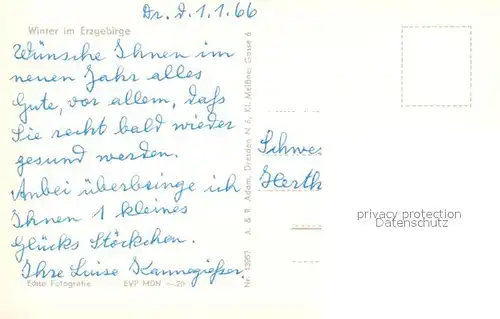 Dr. d. 1.1.66
Winter im Erzgebirge
Wünsche Ihnen im
neuen Jahr alles
Gute, vor allem, daß
Sie recht bald wieder
gesund werden.
Anbei überbringe ich
Ihnen 1 kleines
Glücks Stöckchen.
Ihre Luise Kannegießer.
Echte Fotografie EVP MDN -.20
Nr. 13957 A. & R. Adam, Dresden N 6, Kl. Meißner Gasse 6
Schwes
Herth
privacy protection
Datenschutz